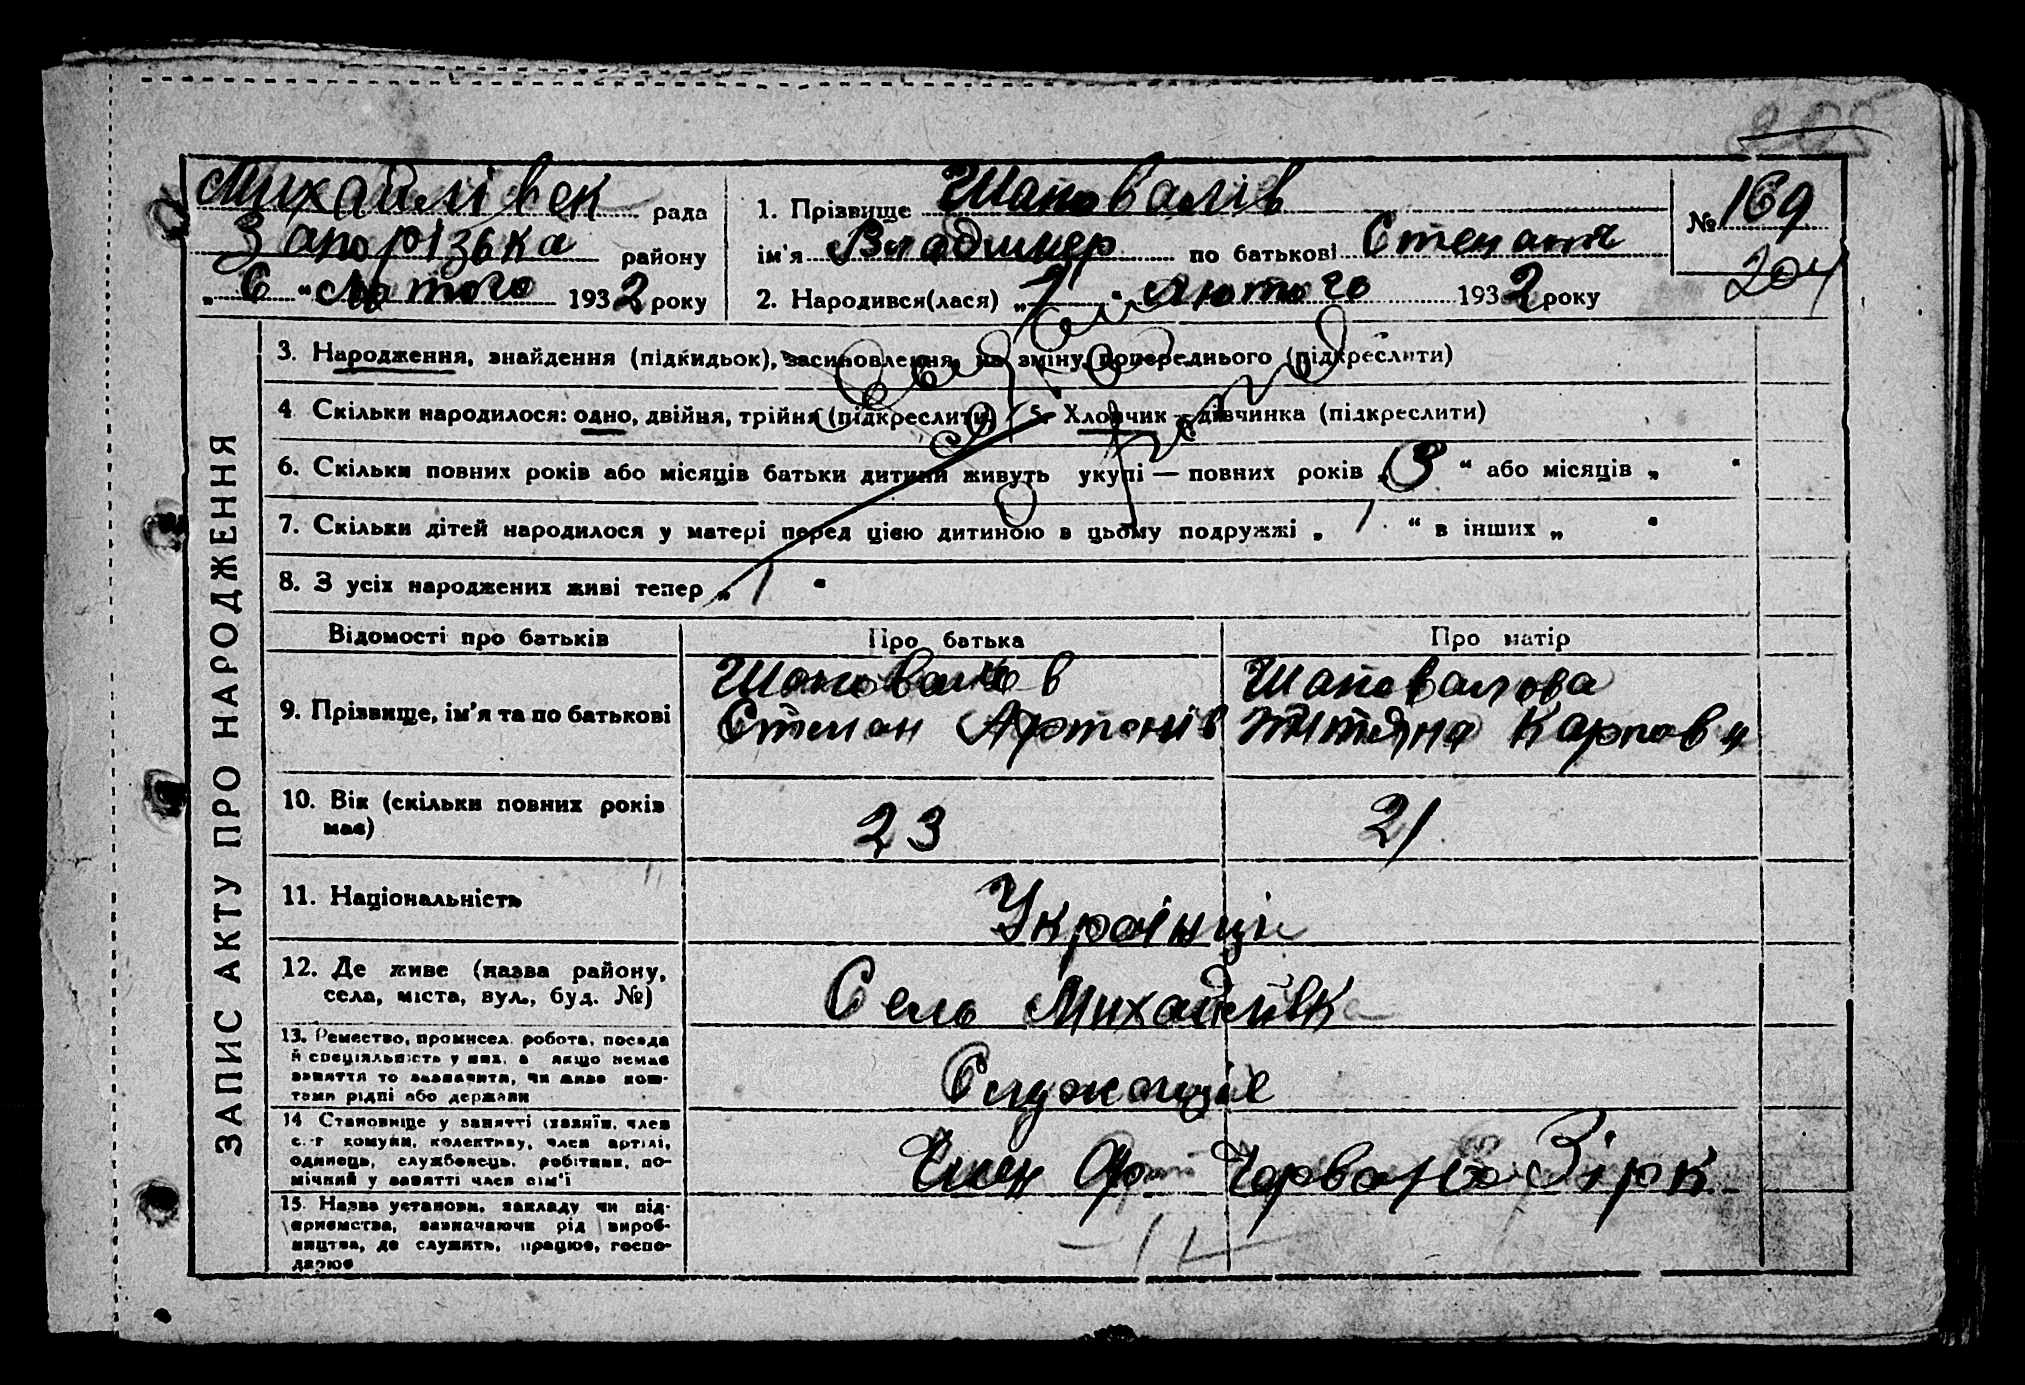 Михайлівск рада
Запорізька району
„ 6 “ Лютого 1932 року
1. Прізвище Шаповалів
ім'я Владимер по батькові Степант
2. Народився(лася) „ 2 “ Лютого 1932 року
№ 169
204
ЗАПИС АКТУ ПРО НАРОДЖЕННЯ
3. Народження, знайдення (підкидьок), засиновлення, на зміну попереднього (підкреслити)
4 Скільки народилося: одно, двійня, трійня (підкреслити) 5. Хлопчик — дівчинка (підкреслити)
6. Скільки повних років або місяців батьки дитини живуть укупі — повних років „ 3 “ або місяців „ “
7. Скільки дітей народилося у матері перед цією дитиною в цьому подружжі „ 1 “ в інших „ “
8. З усіх народжених живі тепер „ 1 “
Відомості про батьків
Про батька
Про матір
9. Прізвище, ім'я та по батькові
Шаповалов
Степан Артонів
Шаповалова
Титяна Карповн
10. Вік (скільки повних років
має)
23
21
11. Національність
Українці
12. Де живе (назва району,
села, міста, вул., буд. №)
Село Михайлівк
13. Ремество, промисел, робота, посада
й спеціяльність у них, а якщо немає
заняття то зазначити, чи живе кош-
тами рідні або держави
Служащіе
14 Становище у занятті (хазяїн, член
с.-г комуни, колективу, член артілі,
одинець, службовець, робітник, по-
мічний у занятті член сім'ї
Член Чорвоно Зірк
15. Назва установи, закладу чи під-
приємства, зазначаючи рід вироб-
ництва, де служить, працює, госпо-
дарює